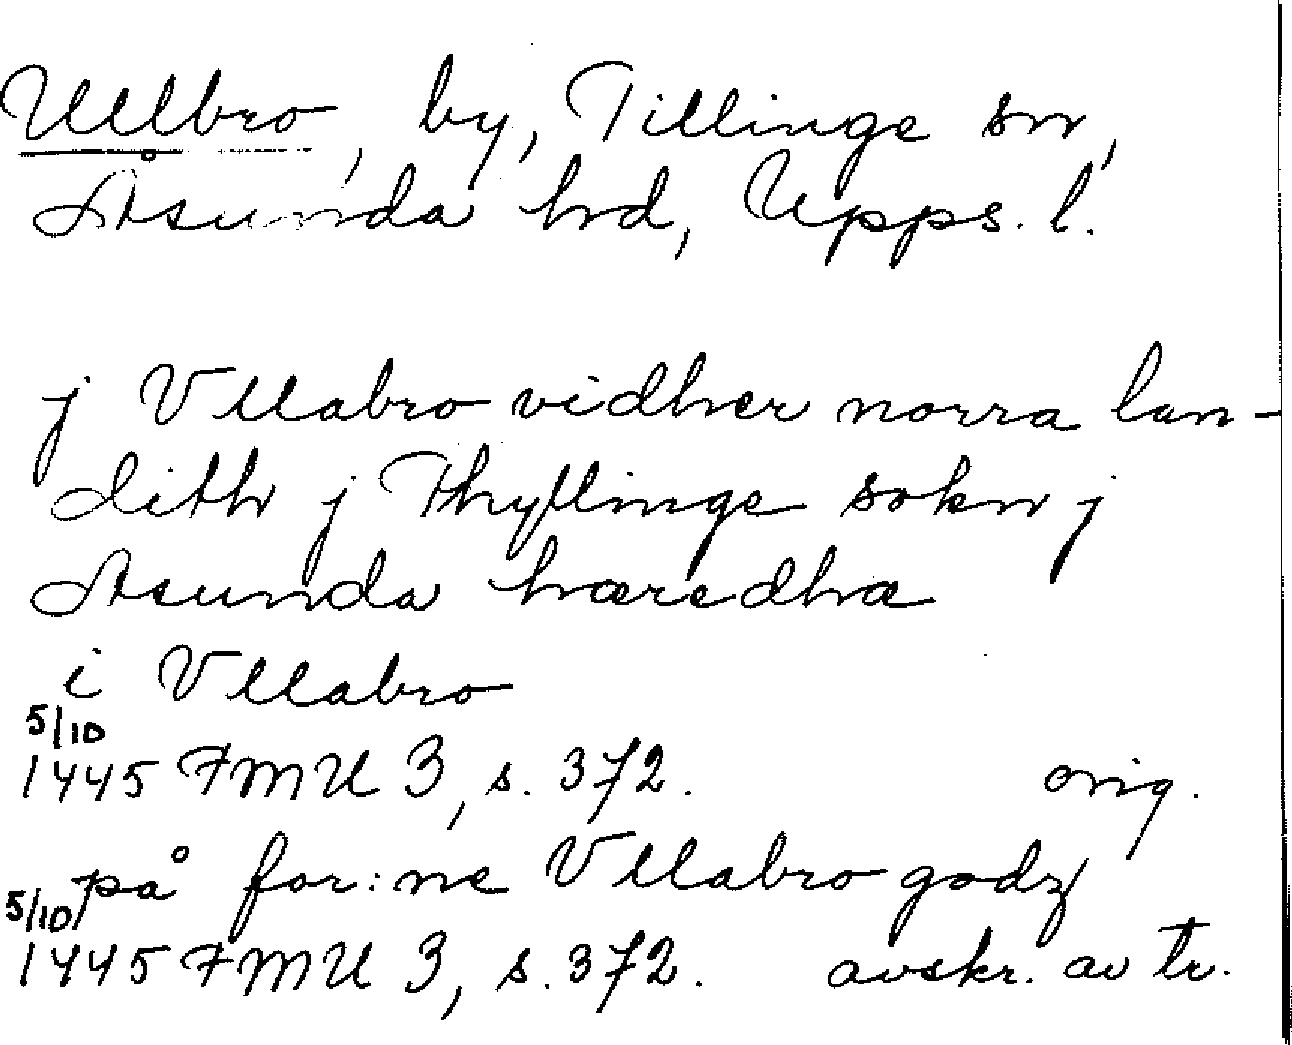 Ullbro, by, Tillinge sn,
Åsunda hd, Upps. l.
j Vllabro vidher norra lan-
dith j Thyllinge sokn j
Asunda hæredhæ
i Vllabro
5/10
1445 FMU 3, s. 372. orig.
på for:ne Vllabro godz
5/10
1445 FMU 3, s. 372. avskr. av tr.